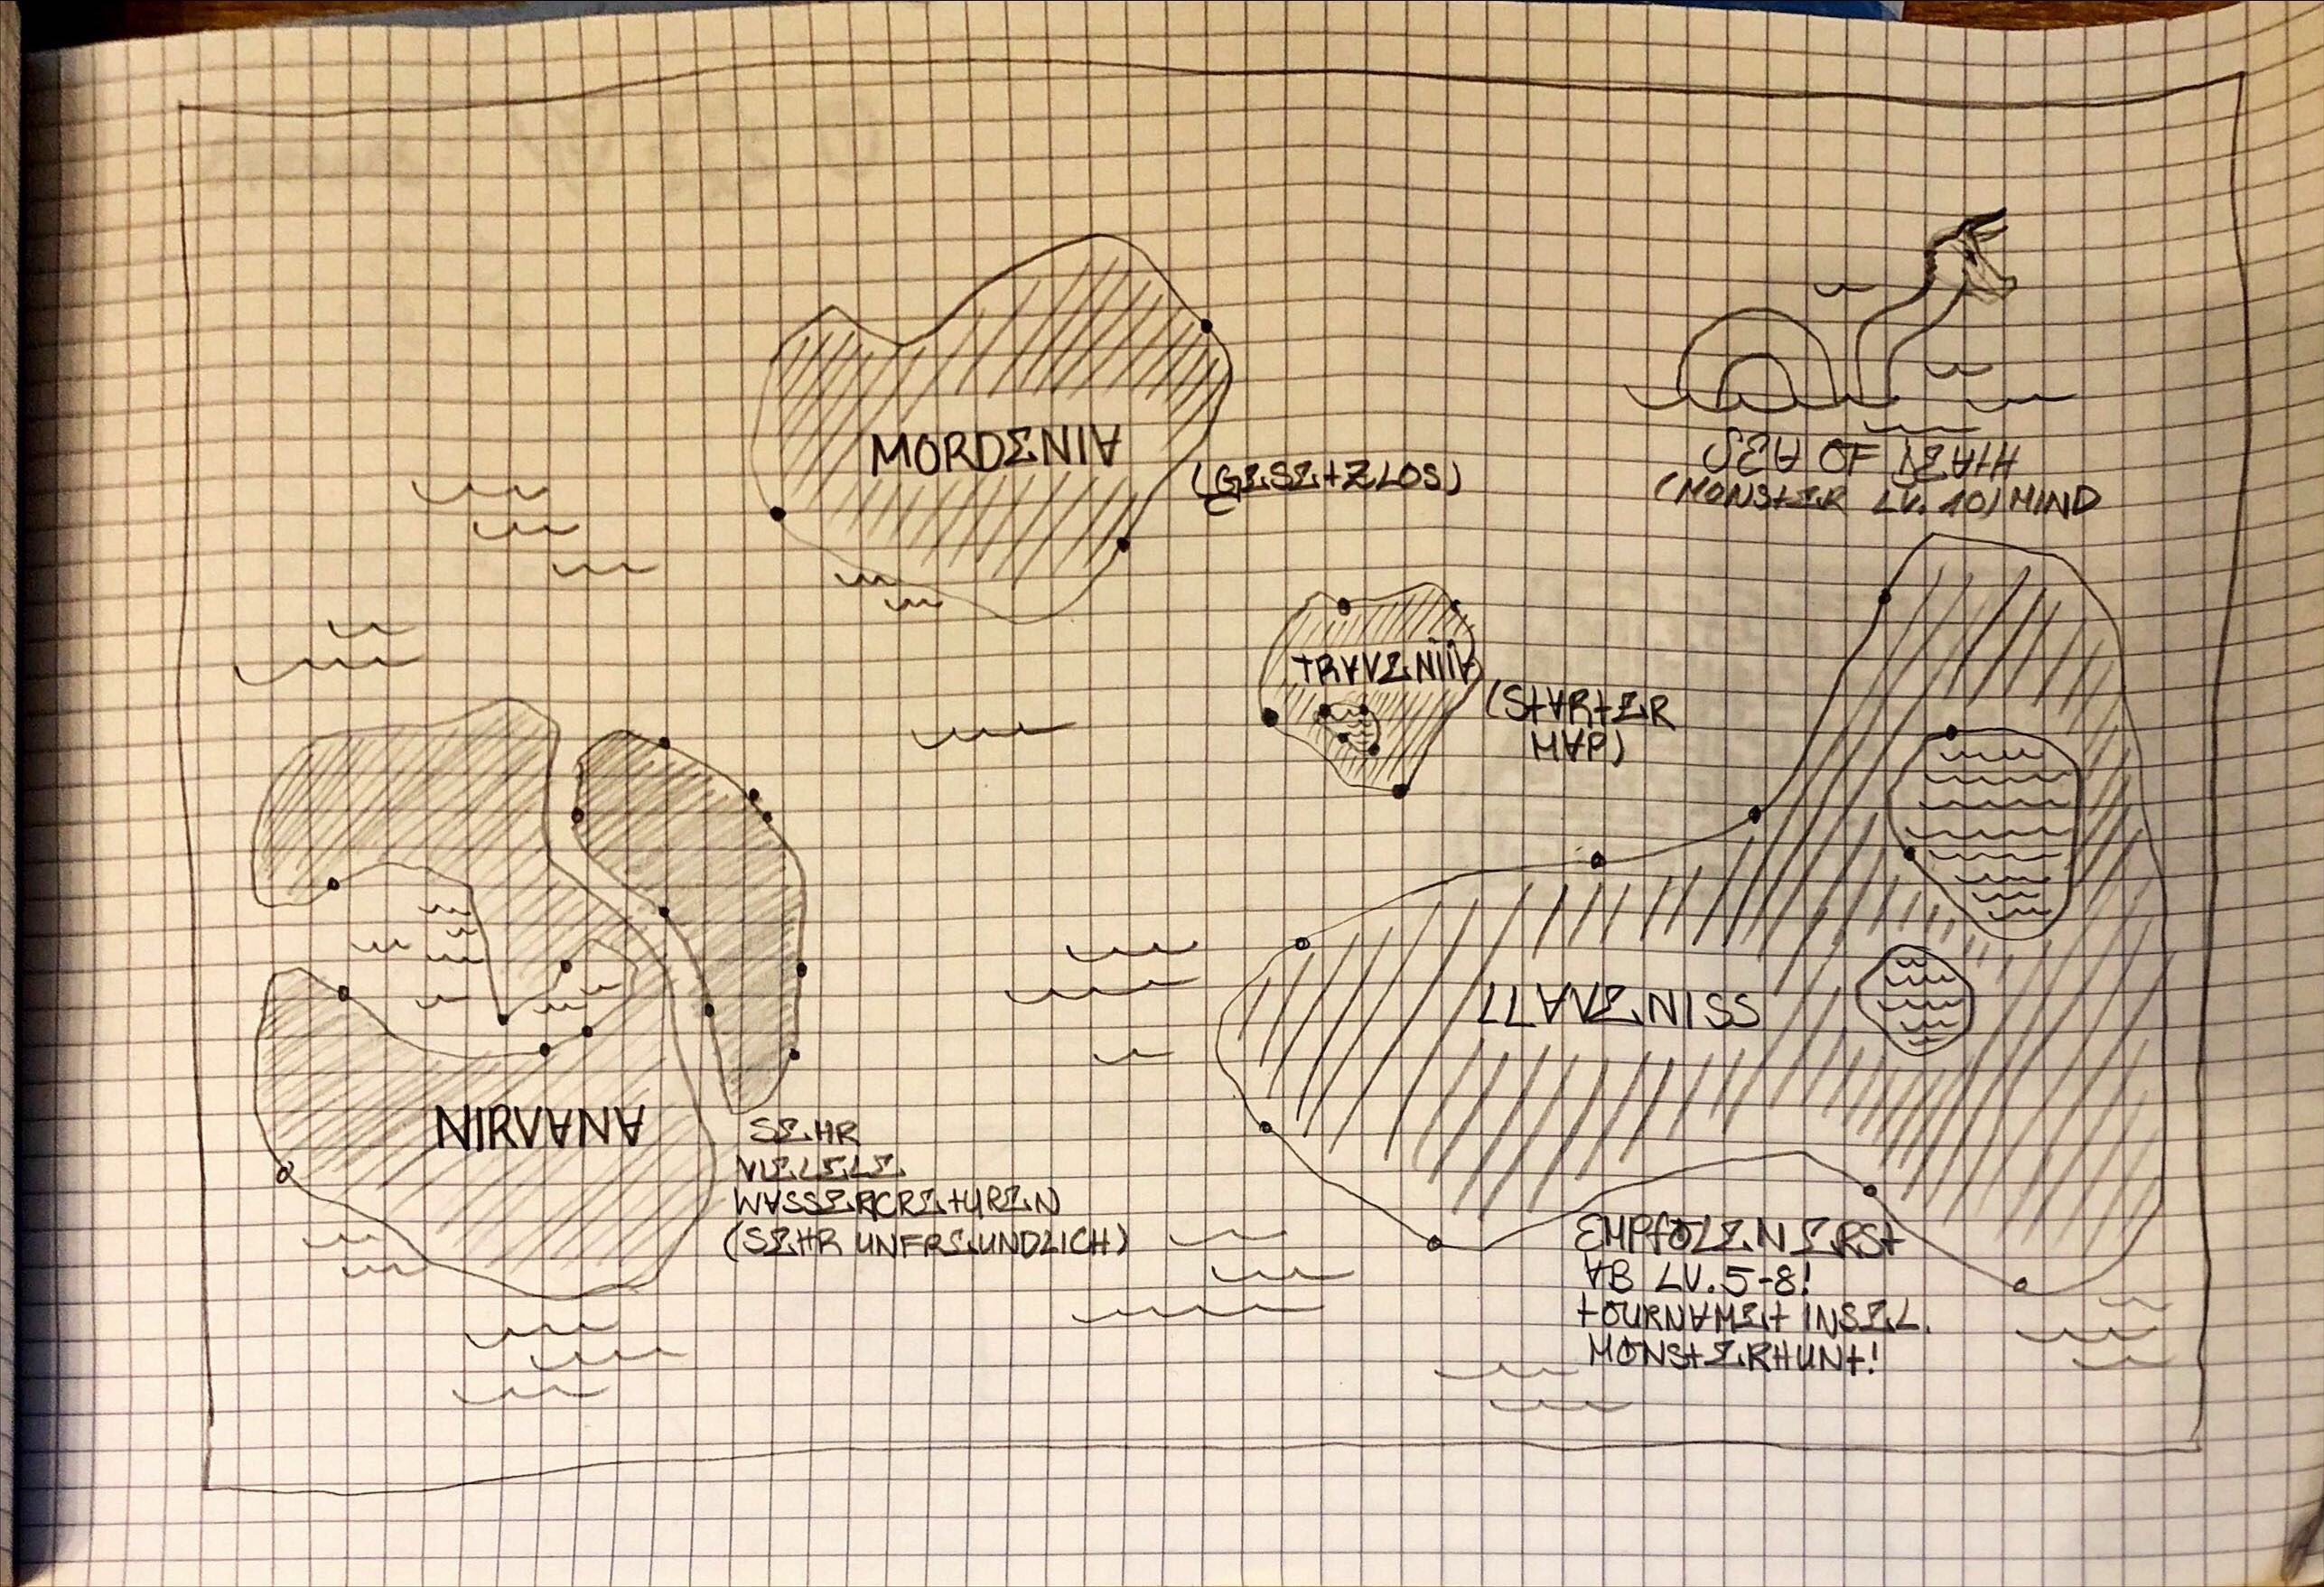 MORDENIA
(GESETZLOS)
SEA OF DEATH
(MONSTER LV. 10) MIND
TRAVENIIA
(STARTER
MAP)
LLAVENISS
NIRVANA
SEHR
VIELELE
WASSERCRETUREN
(SEHR UNFREUNDLICH)
EMPFOLEN ERST
AB LV. 5-8!
TOURNAMET INSEL.
MONSTERHUNT!